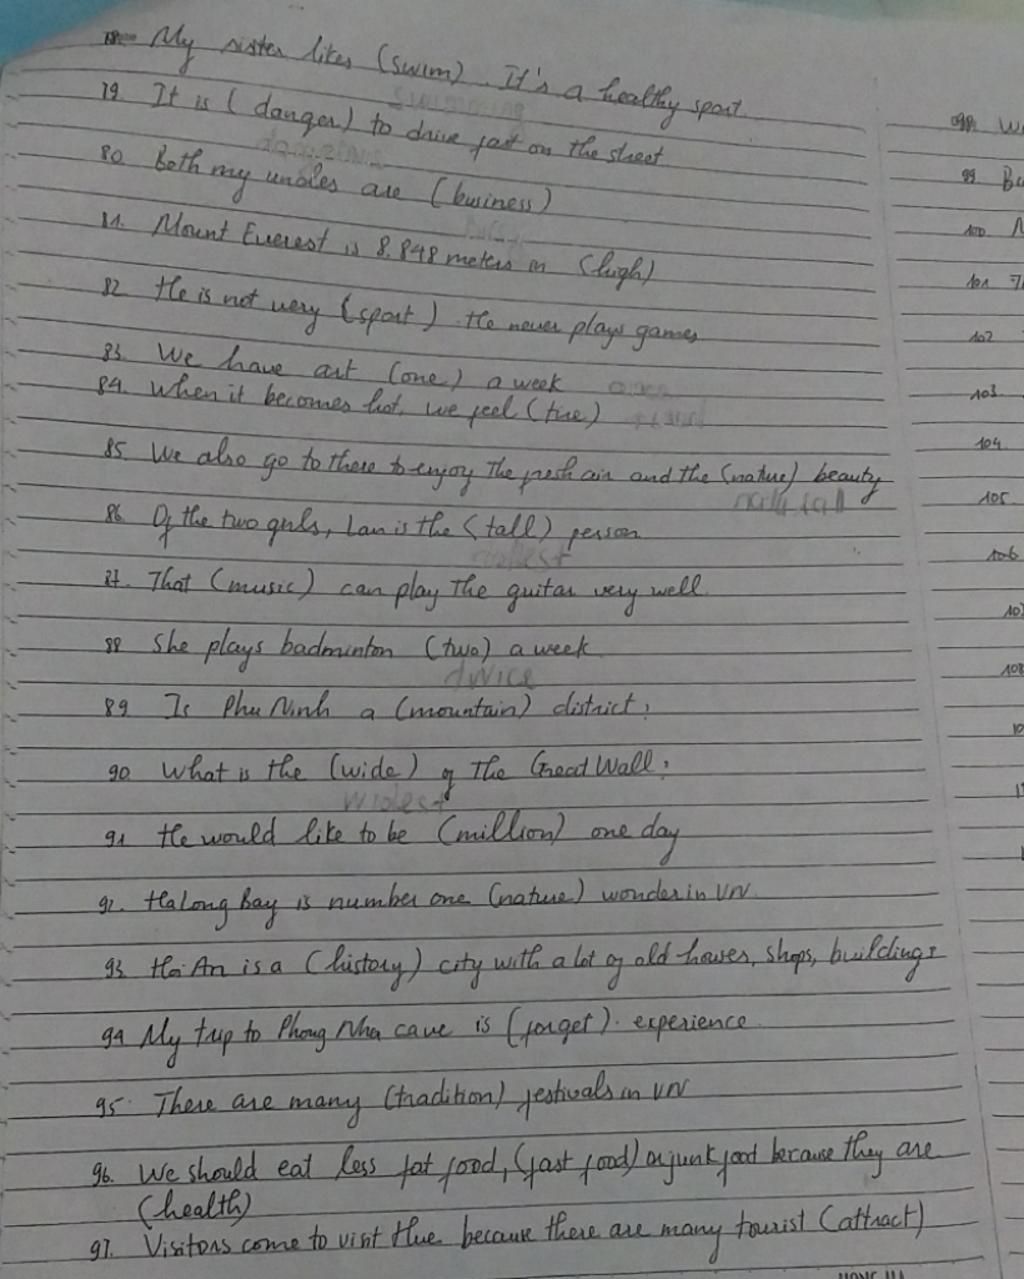 My sister likes (swim). It's a healthy sport.
swimming
79. It is (danger) to drive fast on the street
80. Both my uncles are (business)
81. Mount Everest is 8.848 meters in (high)
82. He is not very (sport). He never plays games
83. We have art (one) a week
84. When it becomes hot, we feel (tire)
85. We also go to there to enjoy the fresh air and the (nature) beauty
86. Of the two girls, Lan is the (tall) person
tallest
87. That (music) can play the guitar very well.
88. She plays badminton (two) a week
twice
89. Is Phu Ninh a (mountain) district?
90. What is the (wide) of the Great Wall?
widest
91. He would like to be (million) one day
92. Halong Bay is number one (nature) wonder in VN.
93. Hoi An is a (history) city with a lot of old houses, shops, buildings
94. My trip to Phong Nha cave is (forget). experience.
95. There are many (tradition) festivals in VN
96. We should eat less fat food, (fast food) or junk food because they are
(health)
97. Visitors come to visit Hue because there are many tourist (attract)
98. We
99. Bu
100.
101.
102
103
104
105
106
108